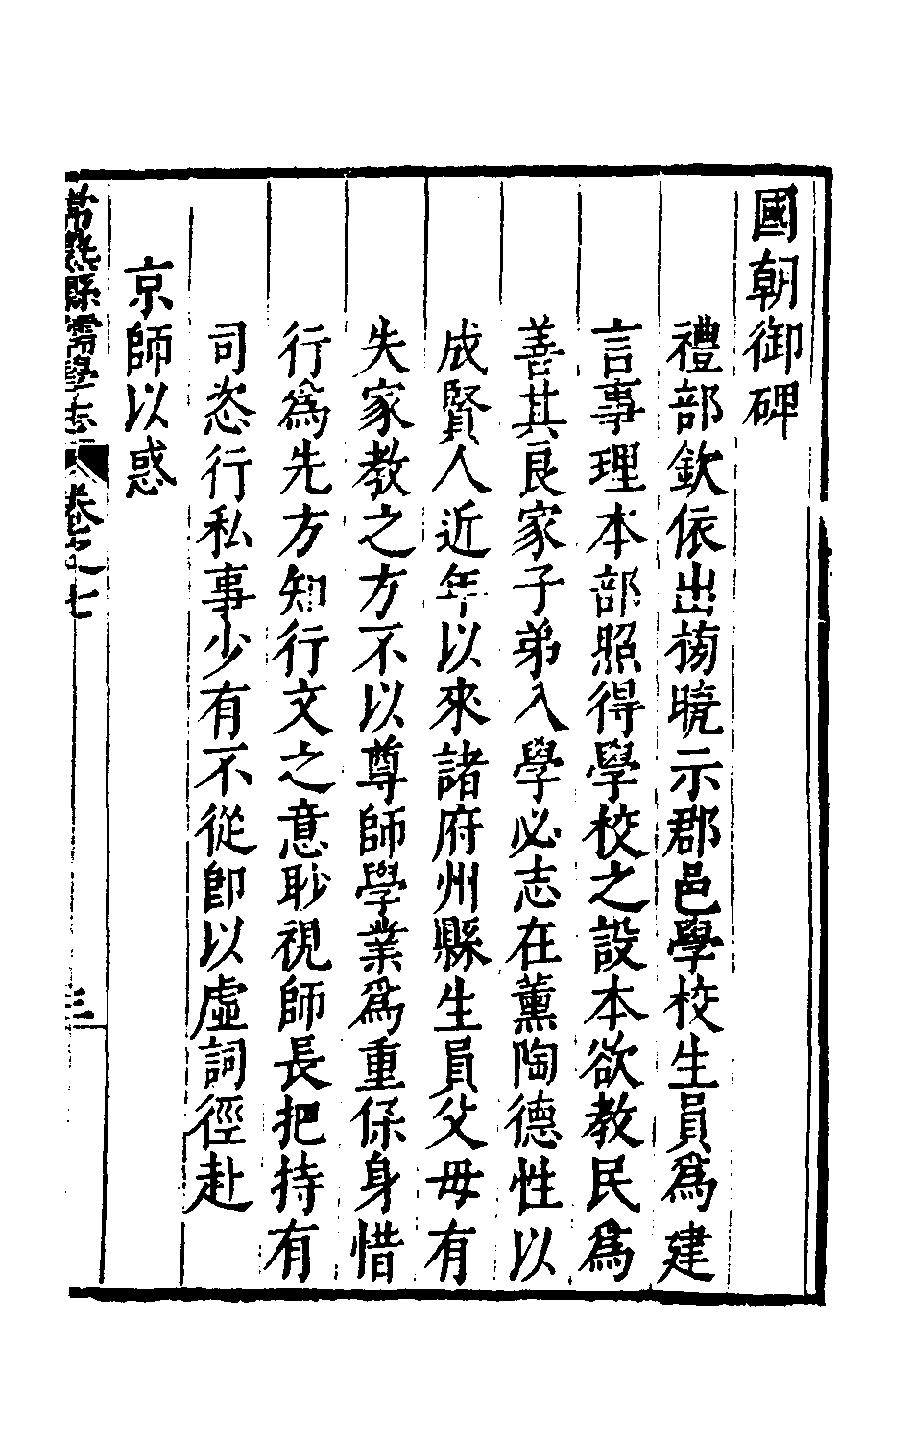 國朝御碑
禮部欽依出榜曉示郡邑學校生員爲建
言事理本部照得學校之設本欲教民爲
善其良家子弟入學必志在薰陶德性以
成賢人近年以來諸府州縣生員父母有
失家教之方不以尊師學業爲重保身惜
行爲先方知行文之意眇視師長把持有
司恣行私事少有不從即以虛詞徑赴
京師以惑
常熟縣儒學志 卷之七 三